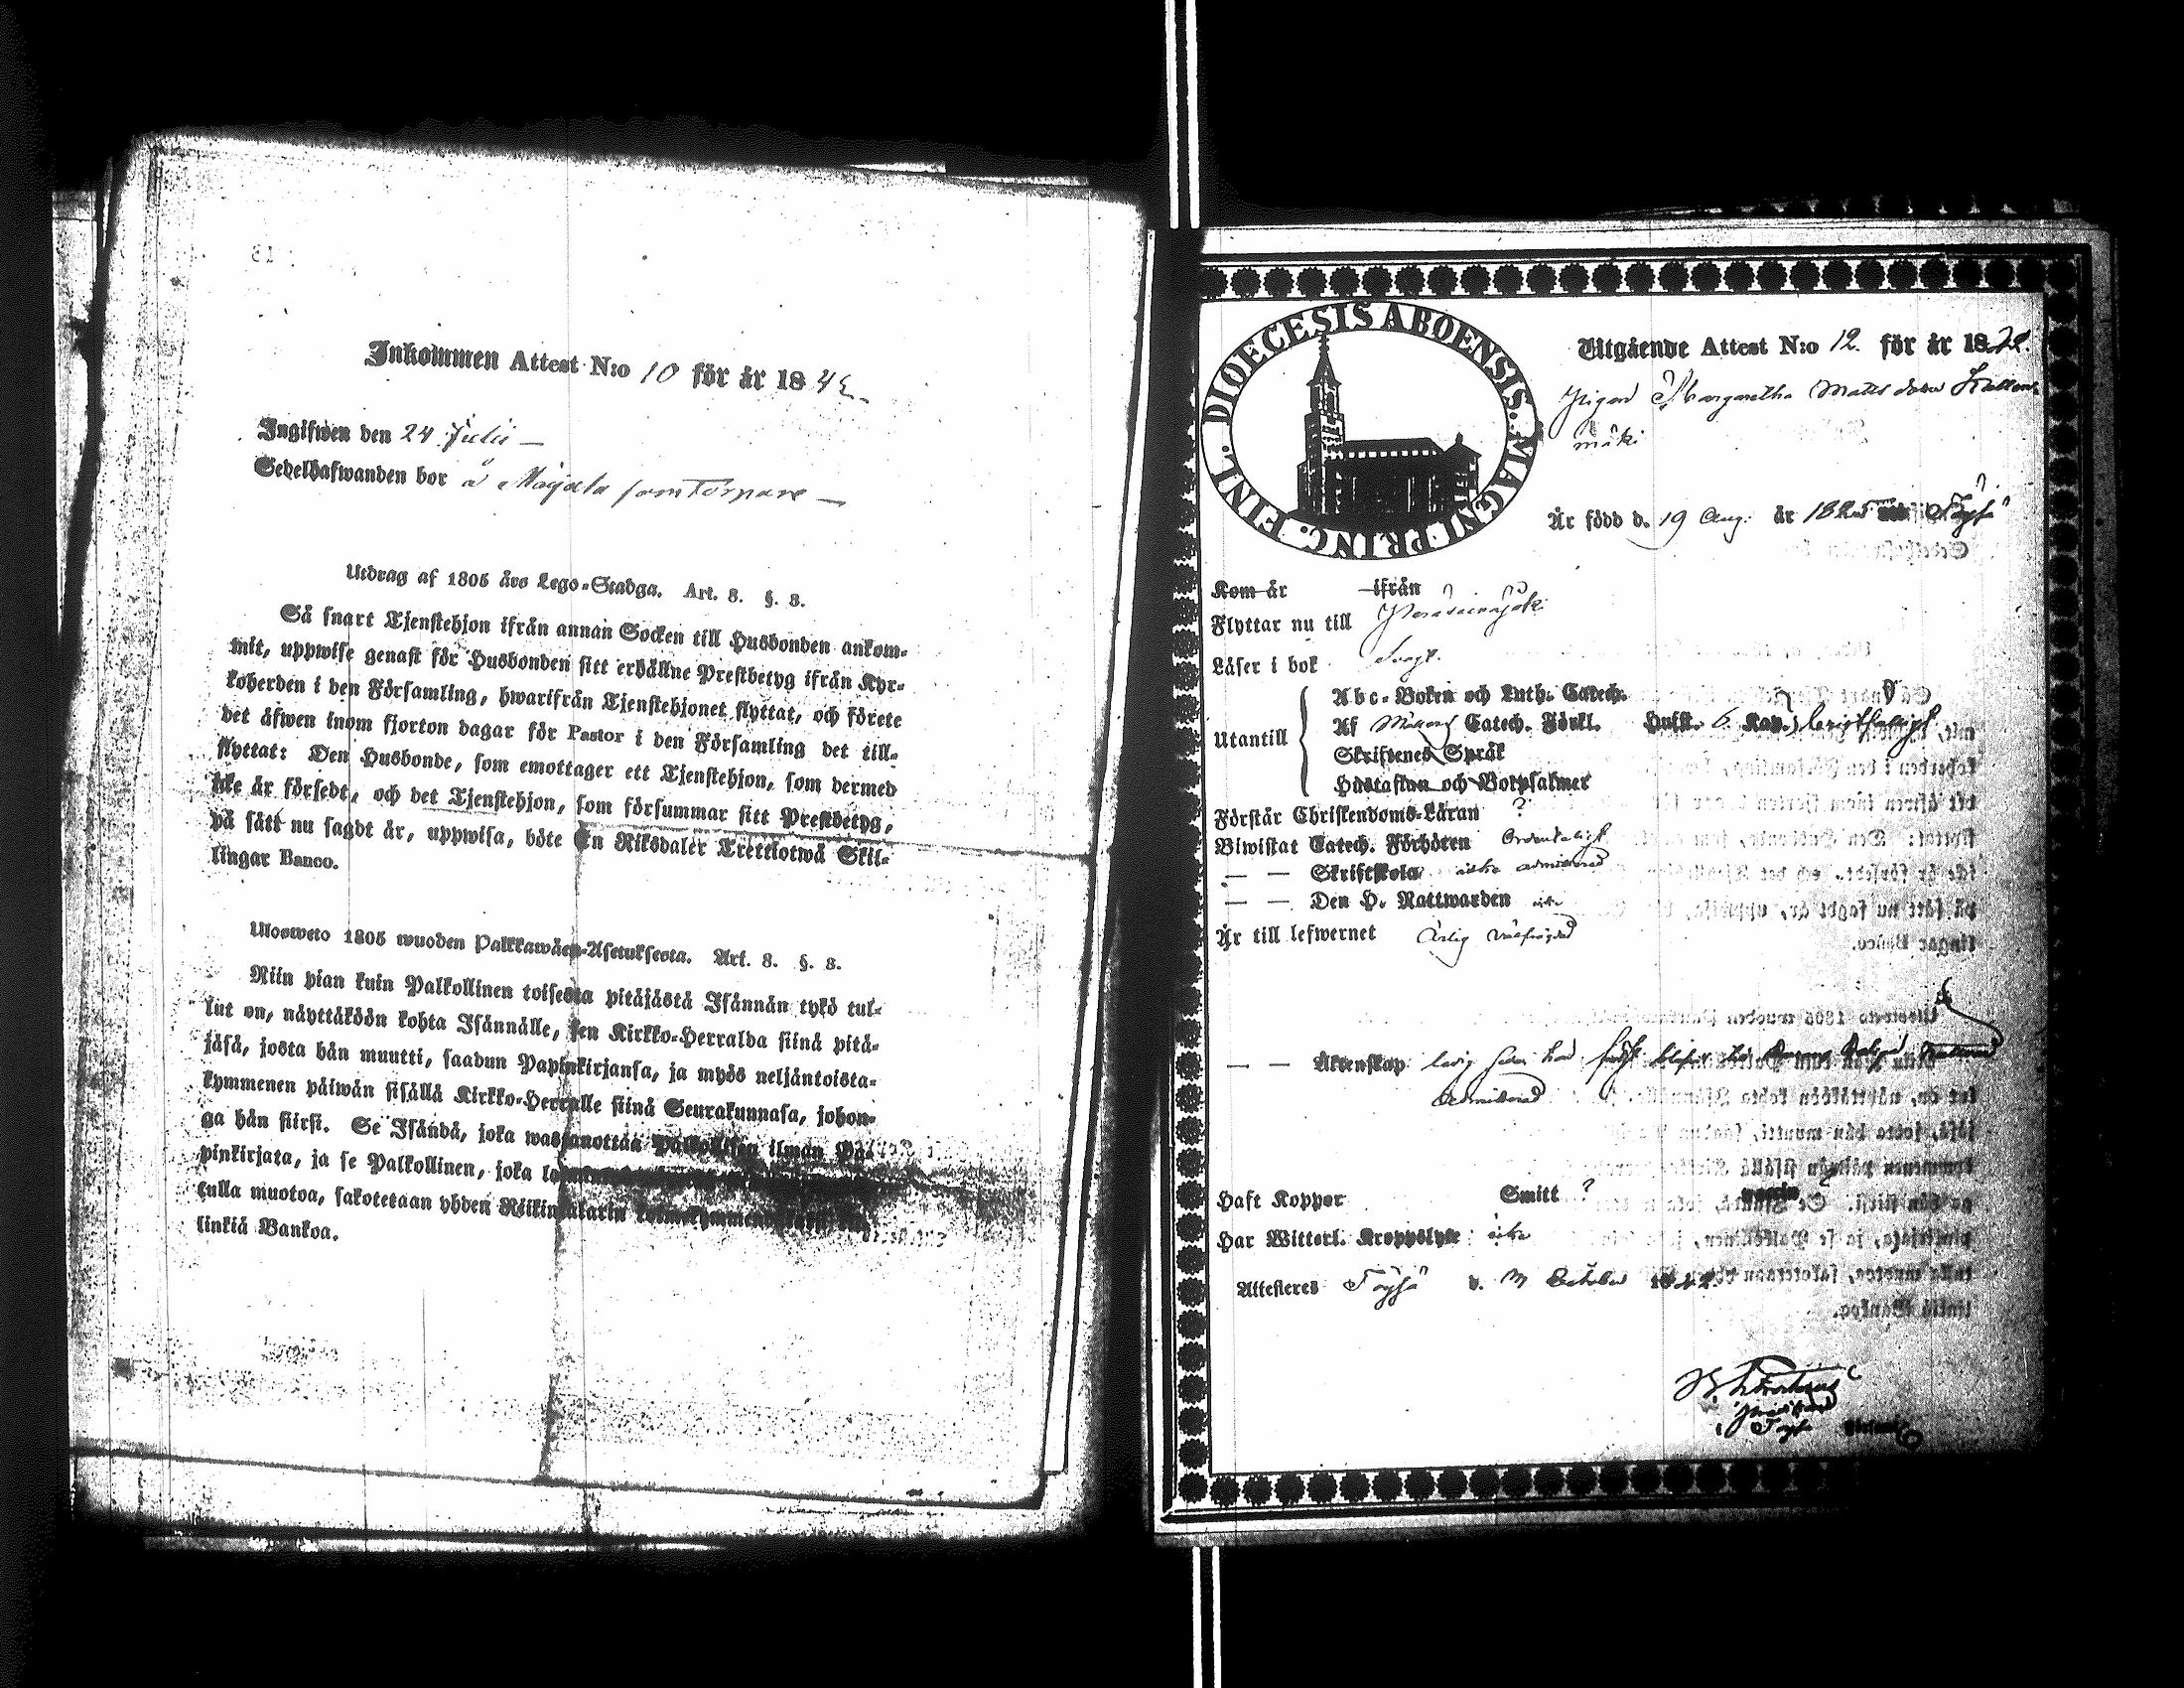 Inkommen Attest N:o 10 för år 1842.
Ingifwen den 24 Julii —
Sedelhafwanden bor å Mäjala som Torpare —
Utdrag af 1805 års Lego-Stadga. Art. 8. §. 8.
Så snart Tjenstehjon ifrån annan Socken till Husbonden ankom-
mit, uppwise genast för Husbonden sitt erhållne Prestbetyg ifrån Kyr-
koherden i den Församling, hwarifrån Tjenstehjonet flyttat, och förete
det äfwen inom fjorton dagar för Pastor i den Församling det till-
flyttat: Den Husbonde, som emottager ett Tjenstehjon, som dermed
icke är försedt, och det Tjenstehjon, som försummar sitt Prestbetyg,
på sätt nu sagdt är, uppwisa, böte En Riksdaler Trettiotwå Skil-
lingar Banco.
Ulosweto 1805 wuoden Palkkawäen-Asetuksesta. Art. 8. §. 8.
Niin pian kuin Palkollinen toisesta pitäjästä Isännän tykö tul-
lut on, näyttäköön kohta Isännälle, sen Kirkko-Herralda siinä pitä-
jäsä, josta hän muutti, saadun Papinkirjansa, ja myös neljäntoista-
kymmenen päiwän sisällä Kirkko-Herralle siinä Seurakunnasa, johon-
ga hän siirsi. Se Isändä, joka wastanottaa Palkollisen ilman Pa-
pinkirjata, ja se Palkollinen, joka
tulla muotoa, sakotetaan yhden Riikintalarin
linkiä Bankoa.
DIOECESIS ABOENSIS. MAGNI PRINC. FINL.
Utgående Attest N:o 12. för år 18
Pigan Margaretha Matts doter
mäki
Är född d. 19 Aug: år 1825 Töysä
Kom år ifrån
Flyttar nu till Peräseinäjoki
Läser i bok Svagt.
Utantill
Abc-Boken och Luth. Catech.
Af Catech. Förkl. Hufst. 6. Kap.
Skriftenes Språk
Hustaflan och Botpsalmer
Förstår Christendoms-Läran ?
Biwistat Catech. Förhören Ordentligt
— — Skriftskola icke admitterad
— — Den H. Nattwarden icke
Är till lefwernet Ärlig välfrejdad
— — Äktenskap ledig
admitterad
Haft Koppor Smitt ?
Har Witterl. Kroppslyte icke
Attesteras Töysä d. October 1842.
Töysä